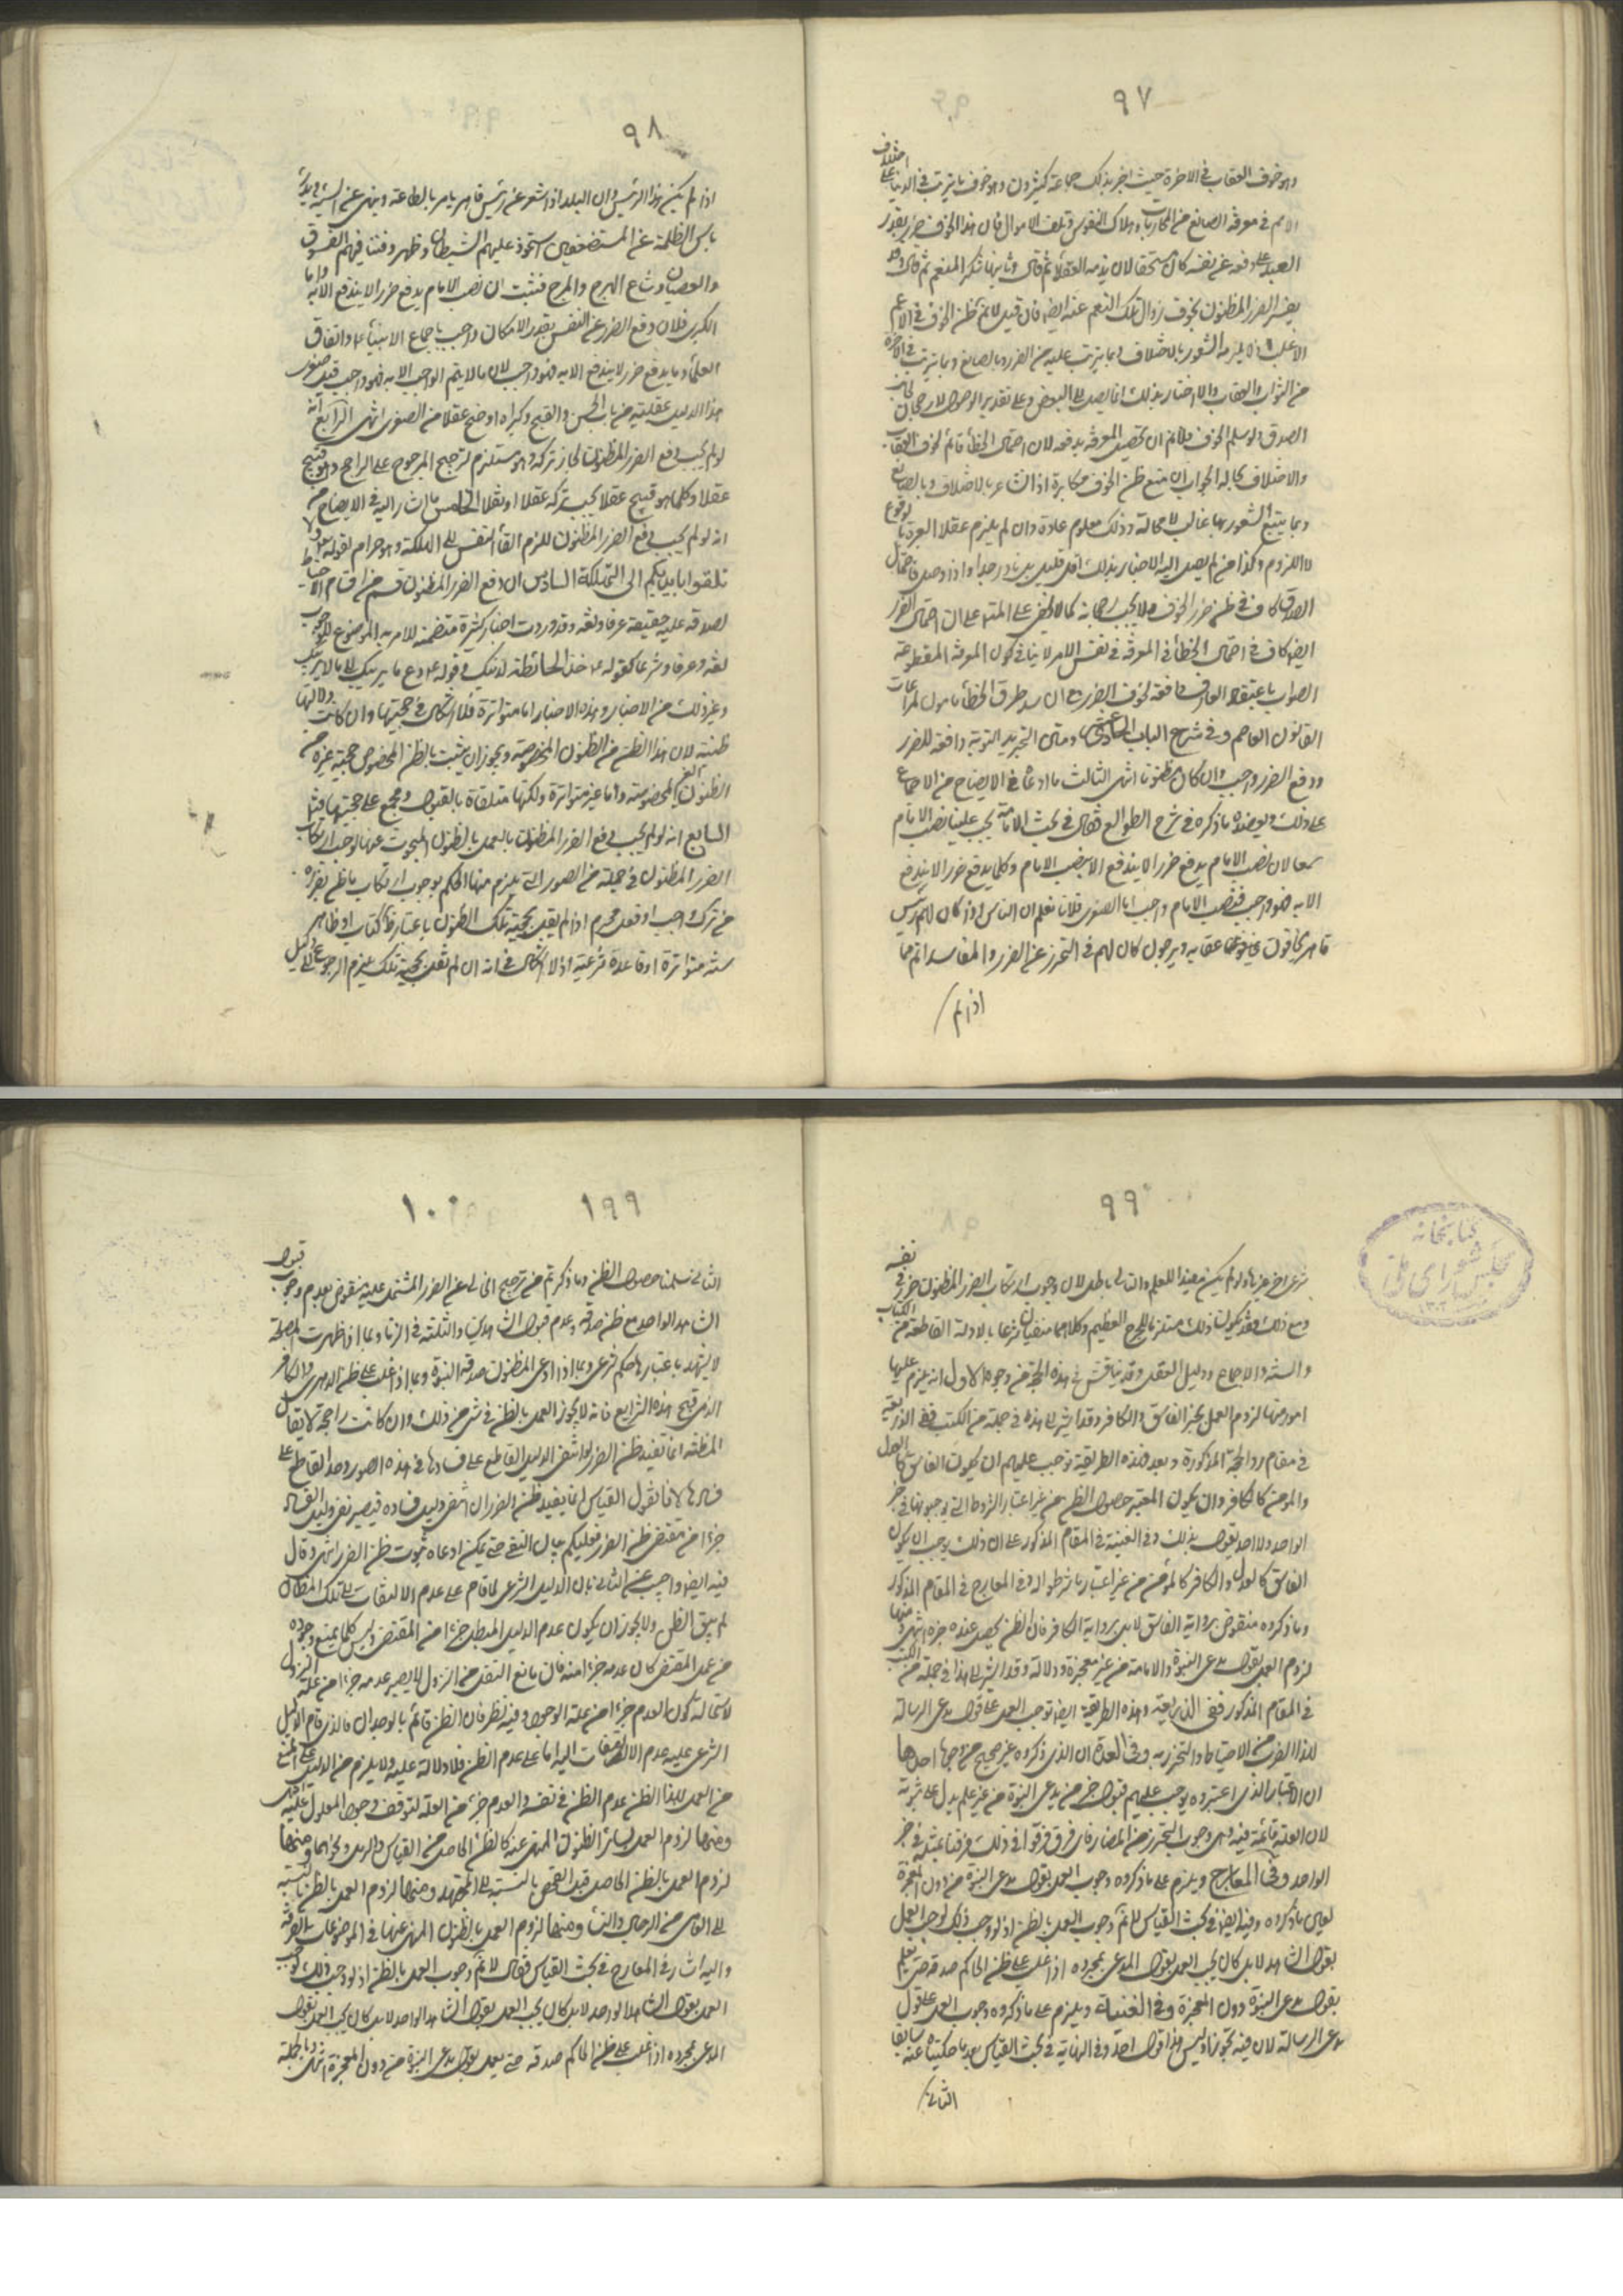 ٩٧
وهو خوف العقاب في الاخرة حيث اخبر بذلك جماعة كثيرون وهو خوف ما يترتب في الدنيا على اختلاف
الامم في معرفة الصانع من المحاربات وهلاك النفوس وتلف الاموال فان هذا الخوف ضرر يقدر
العبد على دفعه عن نفسه كان مستحقا لان يذمه العقلاء ثم قال وثانيها شكر المنعم ثم قال وقد
يفسر الضرر المظنون بخوف زوال تلك النعم عنه ايضا فان قيل لا نم ظن الخوف في الاعم
الاغلب اذ لا يلزمه الشعور بالاختلاف وبما يترتب عليه من الضرر وبالصانع وبما يترتب في الاخرة
من الثواب والعقاب والاخبار بذلك انما يصل الى البعض وعلى تقدير الوصول لا رجحان لجانب
الصدق ولو سلم الخوف فلا نم ان تحصيل المعرفة يدفعه لان احتمال الخطأ قائم لخوف العقاب
والاختلاف بحاله الجواب ان منع ظن الخوف مكابرة اذ الشاعر بالاختلاف وبالصانع
وبما يتبع الشعور بها غالب لا محالة وذلك معلوم عادة وان لم يلزم عقلا العبرة بالوقوع
لا اللزوم وكذا من لم يصل اليه الاخبار بذلك اقل قليل بل نادر جدا واذا وصل فاحتمال
الصدق كاف في ظن ضرر الخوف ولا يجب رجحانه كما لا يخفى على المتنبه على ان احتمال الضرر
ايضا كاف في احتمال الخطأ في المعرفة في نفس الامر لا ينافي كون المعرفة المقطوعة
الصواب باعتقاد العارف دافعة لخوف الضرر مع ان سد طرق الخطأ مأمول لمراعات
القانون العاصم وفي شرح الباب الحادي عشر ومتى التجريد التوبة دافعة للضرر
ودفع الضرر واجب وان كان مظنونا انتهى الثالث ما ادعاه في الايضاح من الاجماع
على ذلك ويعضده ما ذكره في شرح الطوالع فقال في بحث الامامة يجب علينا نصب الامام
سمعا لان نصب الامام يدفع ضررا لا يندفع الا بنصب الامام وكلما يدفع ضررا لا يندفع
الا به فهو واجب فنصب الامام واجب اما الصغرى فلانا نعلم ان الناس اذا كان لهم رئيس
قاهر يخافون عقابه ويرجون كان لهم في التحرز عن الضرر والمفاسد اتم مما
اذا لم
٩٨
اذا لم يكن هذا الرئيس وان البلد اذا شغر عن رئيس قاهر يامر بالطاعة وينهى عن السيئة ويدرء
باس الظلمة عن المستضعفين استحوذ عليهم الشيطان وظهر وفشا فيهم الفسوق
والعصيان وشاع الهرج والمرج فثبت ان نصب الامام يدفع ضررا لا يندفع الا به واما
الكبرى فلان دفع الضرر عن النفس بقدر الامكان واجب باجماع الانبياء ع واتفاق
العلماء وما يدفع ضررا لا يندفع الا به فهو واجب لان ما لا يتم الواجب الا به فهو واجب قيل صغرى
هذا الدليل عقلية من باب الحسن والقبح وكبراه اوضح عقلا من الصغرى انتهى الرابع انه
لو لم يجب دفع الضرر المظنون لجاز تركه وهو مستلزم لترجيح المرجوح على الراجح وهو قبيح
عقلا وكلما هو قبيح عقلا يجب تركه عقلا او نقلا الخامس ما اشار اليه في الايضاح من
انه لو لم يجب دفع الضرر المظنون للزم القاء النفس الى الهلكة وهو حرام لقوله تعالى ولا
تلقوا بايديكم الى التهلكة السادس ان دفع الضرر المظنون قسم من اقسام الاحتياط
لصدقه عليه حقيقة عرفا ولغة وقد وردت اخبار كثيرة متضمنة للامر به الموضوع للوجوب
لغة وعرفا وشرعا كقوله ع خذ الحائطة لدينك وقوله ع دع ما يريبك الى ما لا يريبك
وغير ذلك من الاخبار وهذه الاخبار اما متواترة فلا اشكال في حجيتها وان كانت دلالتها
ظنية لان هذا الظن من الظنون المخصوصة ويجوز ان يثبت بالظن المخصوص حجية غيره من
الظنون الغير المخصوصة واما غير متواترة ولكنها متلقاة بالقبول ومجمع على حجيتها فتأمل
السابع انه لو لم يجب دفع الضرر المظنون بالعمل بالظنون المبحوث عنها لوجب ارتكاب
الضرر المظنون في جملة من الصور التي يلزم منها الحكم بوجوب ارتكاب ما ظن بضرره
من ترك واجب او فعل محرم اذا لم يقل بحجية تلك الظنون باعتبار ظاهر كتاب او ظاهر
سنة متواترة او قاعدة شرعية اذ لا اشكال في انه ان لم نقل بحجية تلك يلزم الرجوع الى دليل
٩٩
شرعي اخر غيرها ولو لم يكن مفيدا للعلم والتالي باطل لان وجوب ارتكاب الضرر المظنون ضرر في نفسه
ومع ذلك فقد يكون ذلك مستلزما للحرج العظيم وكلاهما منفيان شرعا بالادلة القاطعة من الكتاب
والسنة والاجماع ودليل العقل وقد يناقش في هذه الحجة من وجوه الاول انه يلزم عليها
امور منها لزوم العمل بخبر الفاسق والكافر وقد اشير الى هذا في جملة من الكتب ففي الذريعة
في مقام رد الحجة المذكورة وبعد فهذه الطريقة توجب عليهم ان يكون الفاسق كالعدل
والمؤمن كالكافر وان يكون المعتبر حصول الظن من غير اعتبار الشروط التي يوجبونها في خبر
الواحد ولا احد يقول بذلك وفي الغنية في المقام المذكور على ان ذلك يوجب ان يكون
الفاسق كالعدل والكافر كالمؤمن من غير اعتبار ما شرطوا وفي المعارج في المقام المذكور
وما ذكروه منقوض برواية الفاسق لا بل برواية الكافر فان الظن يحصل عنده خبره انتهى ومنها
لزوم العمل بقول مدعي النبوة والامامة من غير معجزة ودلالة وقد اشير الى هذا في جملة من الكتب
في المقام المذكور ففي الذريعة وهذه الطريقة ايضا توجب العمل على قول مدعي الرسالة
لهذا الضرب من الاحتياط والتحرز به وفي العدة ان الذي ذكروه غير صحيح من وجوه احدها
ان الاعتبار الذي اعتبروه يوجب عليهم قبول خبر من يدعي النبوة من غير علم يدل على ثبوته
لان العلة قائمة فيه وهي وجوب التحرز من المضار فاي فرق فرقوا في ذلك فرقنا بمثله في خبر
الواحد وفي المعارج ويلزم على ما ذكروه وجوب العمل بقول مدعي النبوة من دون المعجزة
لعين ما ذكروه وفيه ايضا في بحث القياس لا نم وجوب العمل بالظن اذ لو وجب ذلك لوجب العمل
بقول الشاهد لا بل كان يجب العمل بقول المدعي بمجرده اذا غلب على ظن الحاكم صدقه حتى يعلم
بقول مدعي النبوة دون المعجزة وفي الغنية ويلزم على ما ذكروه وجوب العمل على قول
مدعي الرسالة لان فيه تحرزا وليس هذا قول احد وفي النهاية في بحث القياس بعد ما حكينا عنه سابقا
الثاني
كتابخانه
مجلس شورای ملی
١٣٠٢
١٩٩
١٠٠
الثاني سلمنا حصول الظن وما ذكرتم من ترجيح الخالي عن الضرر المشتمل عليه منقوض بعدم وجوب قبول
الشاهد الواحد مع ظن صدقه وعدم قبول الشاهدين والثلثة في الزنا وبما اذا ظهرت مصلحة
لا يشهد باعتبارها حكم شرعي وبما اذا ادعى المظنون صدقه النبوة وبما اذا غلب على ظن الدهري والكافر
الذمي قبح هذه الشرايع فانه لا يجوز العمل بالظن في شيء من ذلك وان كانت راجحة لا يقال
المظنة انما تفيد ظن الضرر لو انتفى الدليل القاطع على فسادها وفي هذه الصور وجد القاطع على
فسادها لانا نقول القياس انما يفيد ظن الضرر ان انتفى دليل فساده فيصير نفي دليل الفساد
جزءا من مقتضى ظن الضرر فعليكم بيان النفي حتى يمكن ادعاء ثبوت ظن الضرر انتهى وقال
فيه ايضا واجيب عن الثاني بان الدليل الشرعي لما قام على عدم الالتفات الى تلك المظان
لم يبق الظن ولا يجوز ان يكون عدم الدليل المبطل جزءا من المقتضي وليس كلما يمنع وجوده
من عمل المقتضي كان عدمه جزءا منه فان مانع الثقل من النزول لا يصير عدمه جزءا من علة النزول
لاستحالة كون العدم جزءا من علة الوجود وفيه نظر فان الظن قائم بالوجدان والذي قام الدليل
الشرعي عليه عدم الالتفات اليه اما على عدم الظن فلا دلالة عليه ولا يلزم من الدليل على المنع
من العمل لهذا الظن عدم الظن في نفسه والعدم جزء من العلة لتوقف وجود المعلول عليه انتهى
ومنها لزوم العمل بسائر الظنون المنهي عنه كالظن الحاصل من القياس والرمل ونحوهما ومنها
لزوم العمل بالظن الحاصل قبل الفحص بالنسبة الى المجتهد ومنها لزوم العمل بالظن بالنسبة
الى العامي من الرجال والنساء ومنها لزوم العمل بالظنون المنهي عنها في الموضوعات الصرفة
واليه اشار في المعارج في بحث القياس فقال لا نم وجوب العمل بالظن اذ لو وجب ذلك لوجب
العمل بقول الشاهد الواحد لا بل كان يجب العمل بقول الشاهد الواحد لا بل كان يجب العمل بقول
المدعي بمجرده اذا غلب على ظن الحاكم صدقه حتى يعمل بقول مدعي النبوة من دون المعجزة انتهى وبالجملة